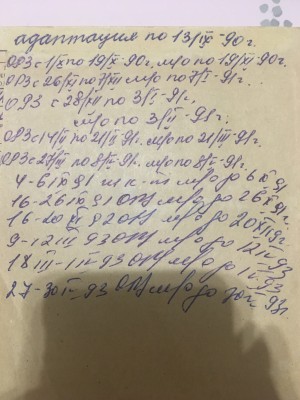 адаптация по 13/IX-90г.
ОРЗ с 1/X по 19/X-90г. м/о по 19/XI 90г.
ОРЗ с 26/XII по 7/I м/о по 7/II-91г.
ОРЗ с 28/XII по 3/I-91г.
м/о по 3/II-91г.
ОРЗ с 14/II по 21/II-91г. м/о по 21/III-91г.
ОРЗ с 27/III по 8/IV-91г. м/о по 8/V-91г.
4-6 IX 91 м/о до 6 XI 91
16-26 IX 91 ОРЗ м/о до 26 X 91г.
16-20 XI 92 ОРЗ м/о до 20 XII 92г.
9-12 III 93 ОРЗ м/о до 12 IV 93
18 III-1 IV 93 ОРЗ м/о до 1 V 93
27-30 IV 93 ОРЗ м/о до 30 V 93г.